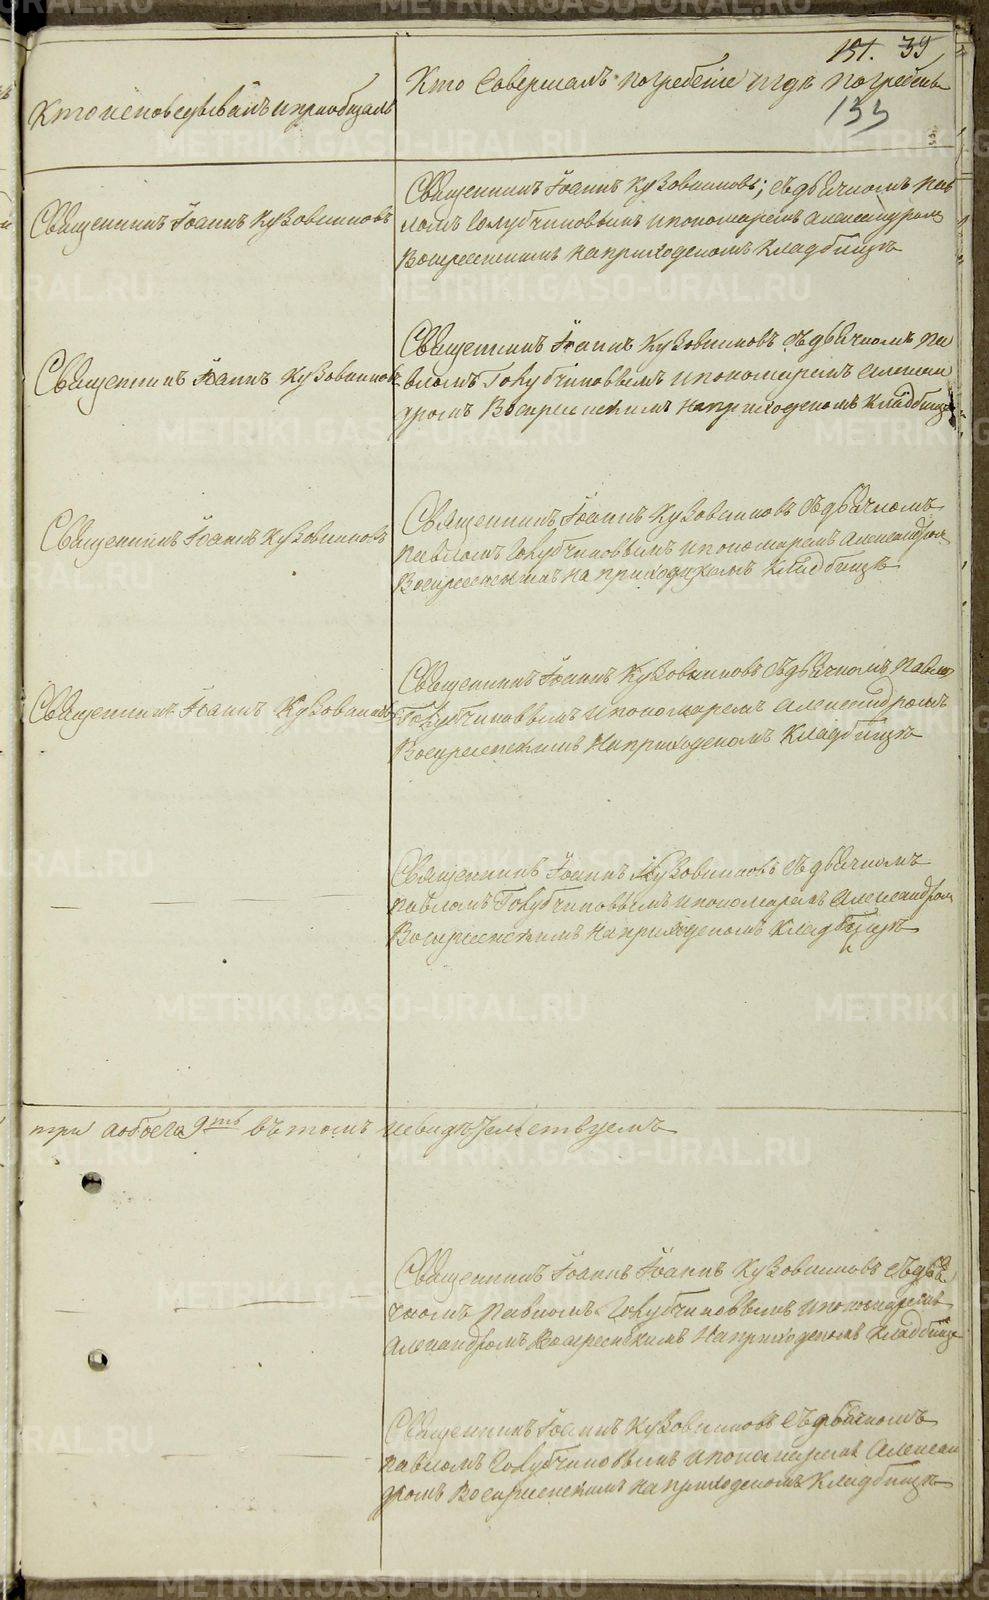 151. 39
133
Кто исповѣдывалъ и приобщалъ
Кто Совершалъ погребеніе и гдѣ погребены
Священникъ Іоаннъ Кузовниковъ
Священникъ Іоаннъ Кузовниковъ; съ дьячкомъ Пав
ломъ Голубчиковымъ и пономаремъ Александромъ
Воскресенскимъ на приходскомъ кладбищѣ
Священникъ Іоаннъ Кузовниковъ
Священникъ Іоаннъ Кузовниковъ съ дьячкомъ Па
вломъ Голубчиковымъ и пономаремъ Алексан
дромъ Воскресенскимъ на приходскомъ Кладбищѣ
Священникъ Іоаннъ Кузовниковъ
Священникъ Іоаннъ Кузовниковъ съ дьячкомъ
Павломъ Голубчиковымъ и пономаремъ Александром
Воскресенскимъ на приходскомъ Кладбищѣ
Священникъ Іоаннъ Кузовниковъ
Священникъ Іоаннъ Кузовниковъ съ дьячкомъ Павло
Голубчиковымъ и пономаремъ Александромъ
Воскресенскимъ На приходскомъ Кладбищѣ
Священникъ Іоаннъ Кузовниковъ съ дьячкомъ
Павломъ Голубчиковымъ и пономаремъ Александром
Воскресенскимъ На приходскомъ Кладбищѣ
три а обоего 9ть въ томъ и свидѣтельствуемъ
Священникъ Іоаннъ Іоаннъ Кузовниковъ съ дья
чкомъ Павломъ Голубчиковымъ и пономаремъ
Александромъ Воскресенскимъ На приходскомъ кладбищѣ
Священникъ Іоаннъ Кузовниковъ съ дьячкомъ
Павломъ Голубчиковымъ и пономаремъ Алексан
дромъ Воскресенскимъ на приходскомъ Кладбищѣ
METRIKI.GASO-URAL.RU